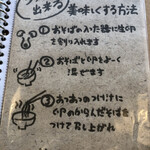 出来る 美味しくする方法
① おそばの入った器に生卵
を割り入れます
② おそばと卵をよく
混ぜます
③ あつあつのつけ汁に
卵のからんだそばを
つけて召し上がれ